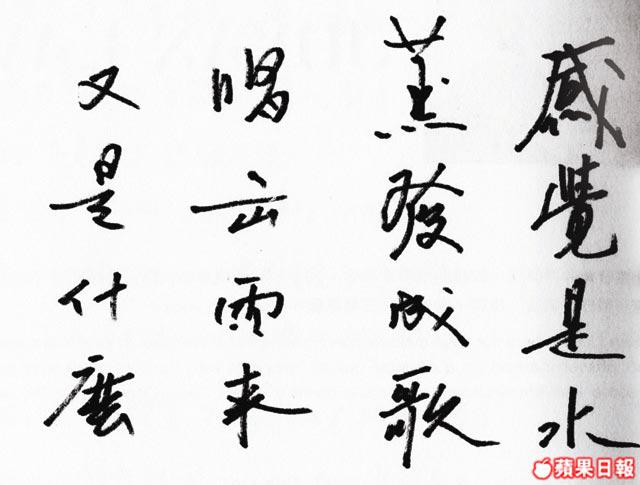 感覺是水
蒸發成歌
唱出雨来
又是什麼
蘋果日報